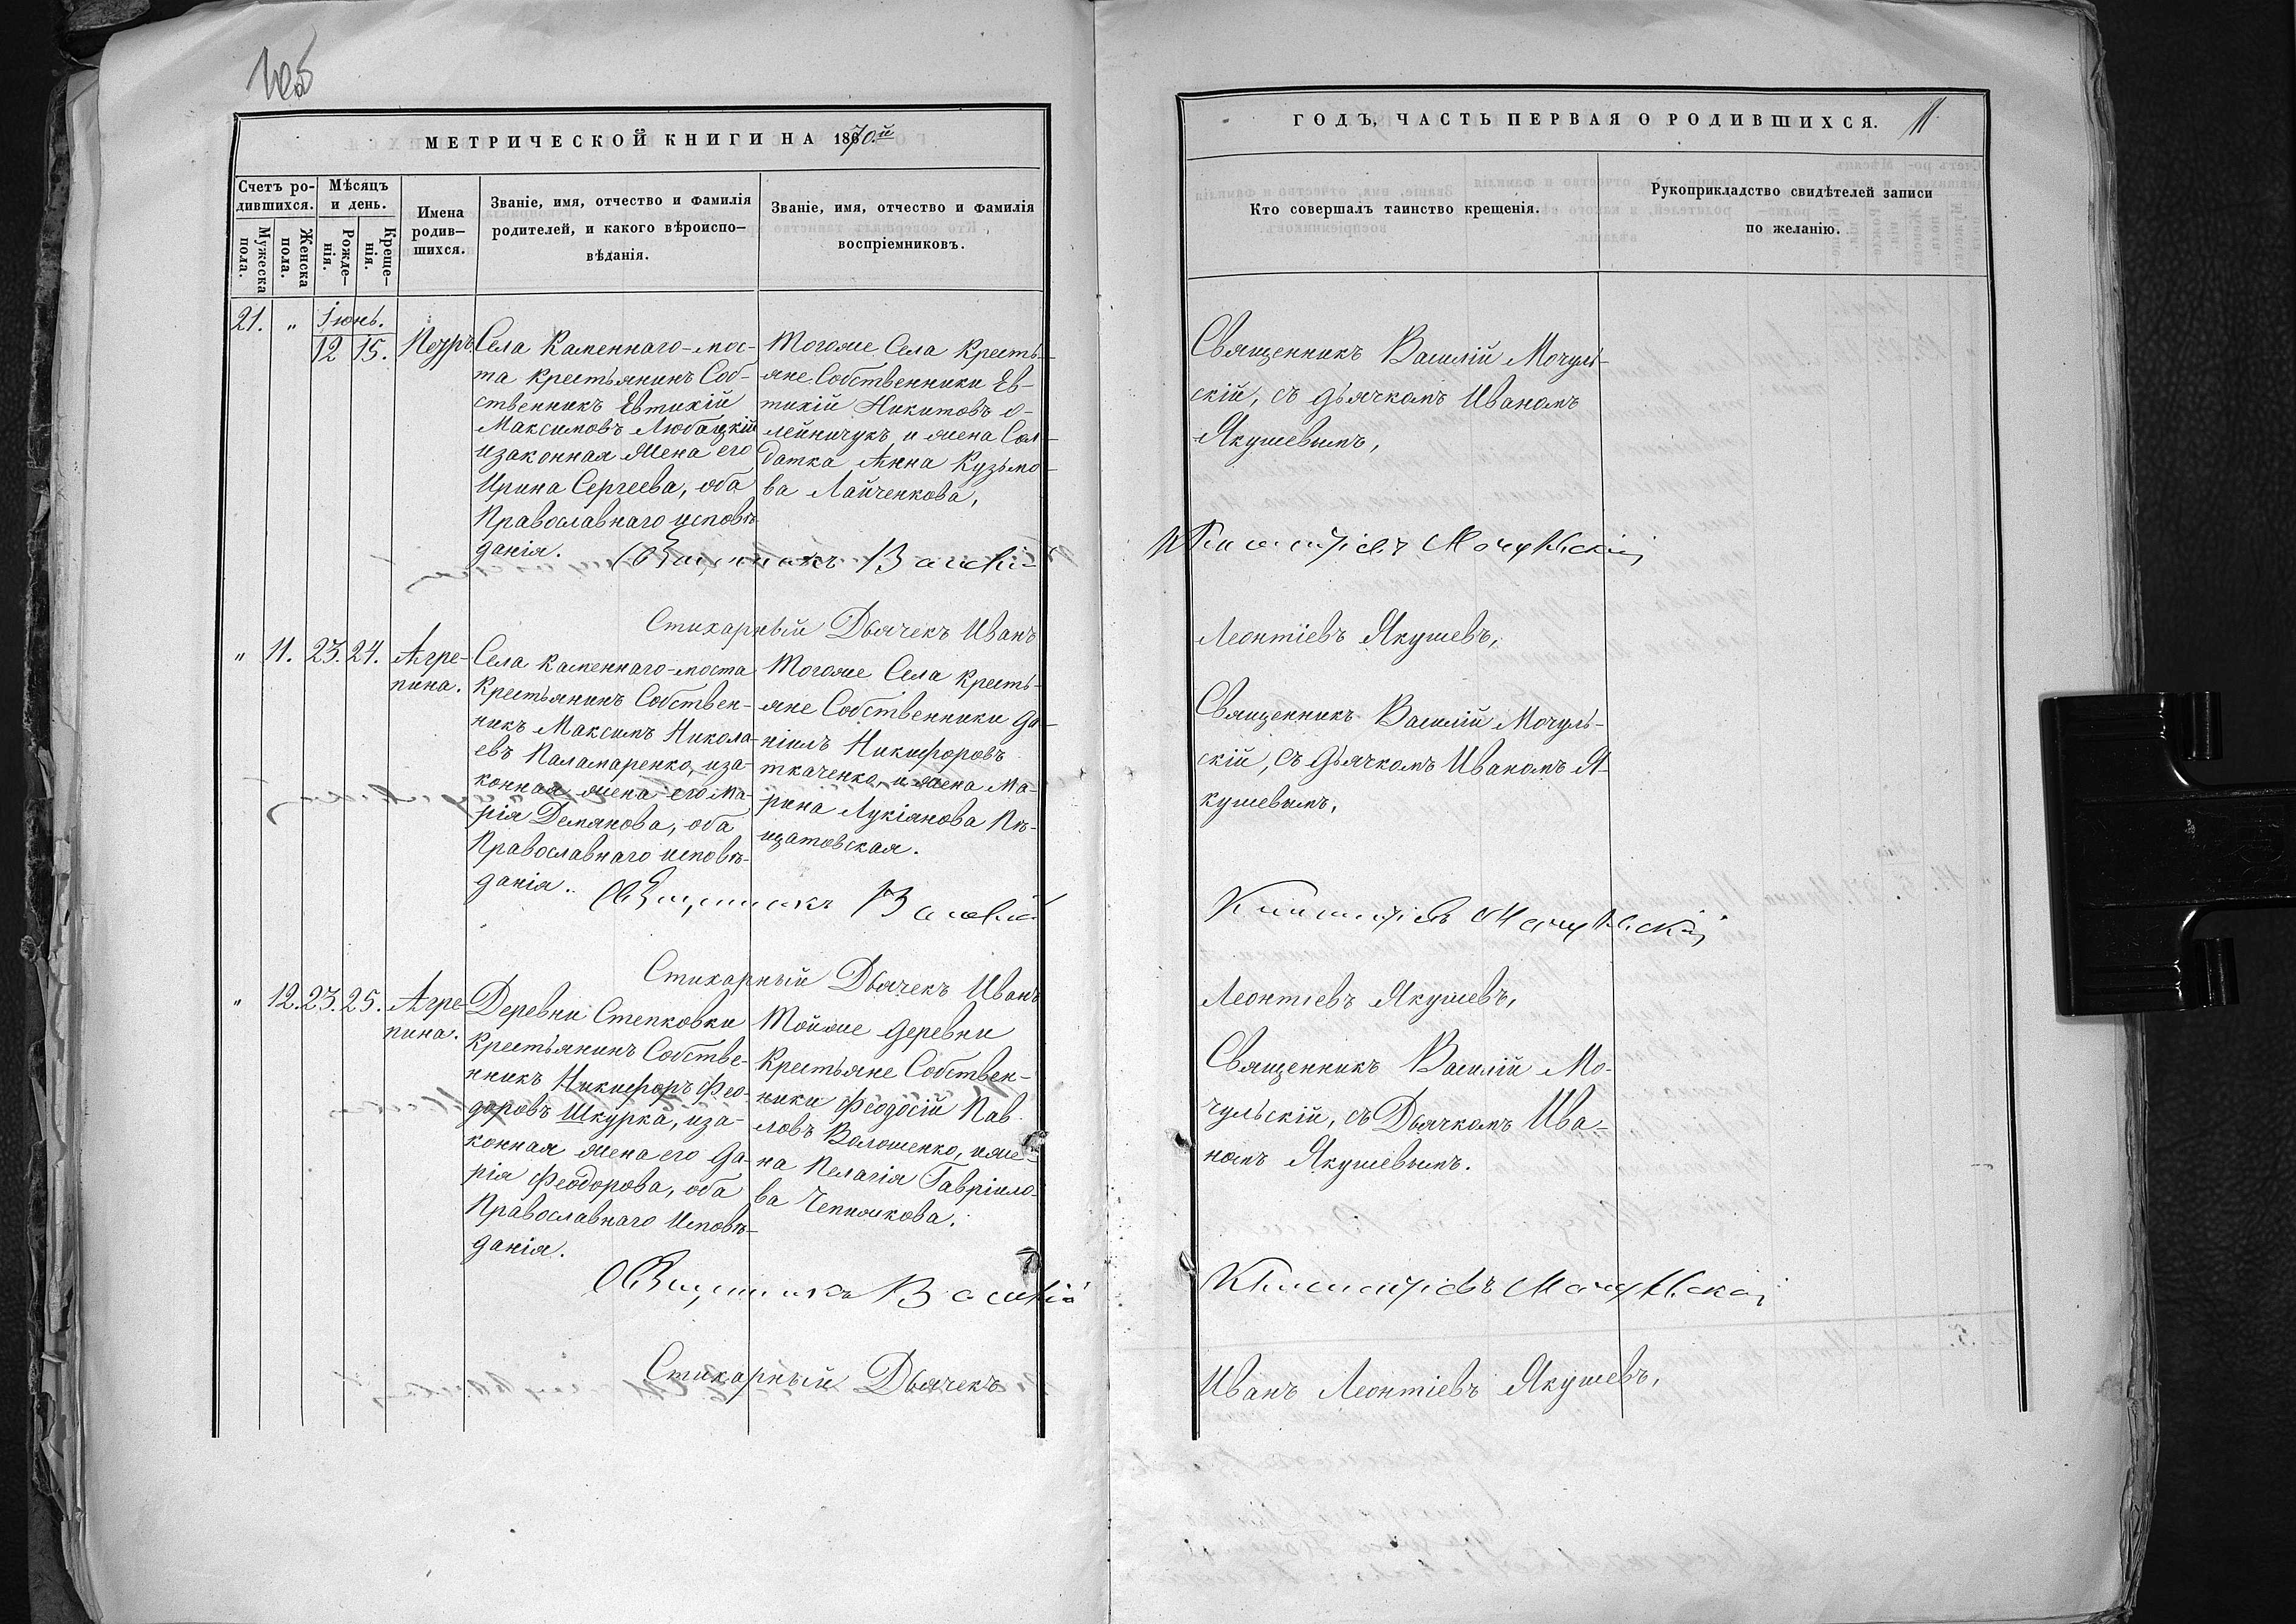 МЕТРИЧЕСКОЙ КНИГИ НА 1870.й
Счетъ ро-
дившихся.
Мѣсяцъ
и день.
Мужеска
пола.
Женска
пола.
Рожде-
нія.
Креще-
нія.
Имена
родив-
шихся.
Званіе, имя, отчество и фамилія
родителей, и какого вѣроиспо-
вѣданія.
Званіе, имя, отчество и фамилія
воспріемниковъ.
21. " Іюнь.
12 15. Петръ.
Села Каменнаго-мос-
та крестьянинъ Соб-
ственникъ Евтихій
Максимовъ Любацкій
изаконная жена его
Ирина Сергеева, оба
Православнаго исповѣ-
данія.
Тогоже Села Кресть-
яне Собственники Ев-
тихій Никитовъ О-
лейничукъ, и жена Сол-
датка Анна Кузьмо-
ва Лайченкова,
Священникъ Василій
Стихарный Дьячекъ Иванъ
" 11. 23. 24. Агре-
пина.
Села Каменнаго-моста
Крестьянинъ Собствен-
никъ Максимъ Никола-
евъ Паламаренко, иза-
конная жена его Ма-
рія Демянова, оба
Православнаго исповѣ-
данія.
Тогоже Села кресть-
яне Собственники Да-
ніилъ Никифоровъ
ткаченко, и жена Ма-
рина Лукіянова Пѣ-
щатовская.
Священникъ Василій
Стихарный Дьячекъ Иванъ
" 12. 23. 25. Агре-
пина.
Деревни Степковки
Крестьянинъ Собстве-
нникъ Никифоръ Фео-
доровъ Шкурка, иза-
конная жена его Да-
рія Феодорова, оба
Православнаго Исповѣ-
данія.
Тойже деревни
Крестьяне Собствен-
ники Феодосій Пав-
ловъ Волошенко, иже-
на Пелагія Гавріило-
ва Чепижкова.
Священникъ Василій
Стихарный Дьячекъ
ГОДЪ, ЧАСТЬ ПЕРВАЯ О РОДИВШИХСЯ. 11
Кто совершалъ таинство крещенія.
Рукоприкладство свидѣтелей записи
по желанію.
Священникъ Василій Мочуль-
скій, съ дьячкомъ Иваномъ
Якушевымъ,
Мочульскій
Леонтіевъ Якушевъ,
Священникъ Василій Мочуль-
скій, съ Дьячкомъ Иваномъ Я-
кушевымъ,
Мочульскій
Леонтіевъ Якушевъ,
Священникъ Василій Мо-
чульскій, съ Дьячкомъ Ива-
номъ Якушевымъ.
Мочульскій
Иванъ Леонтіевъ Якушевъ,